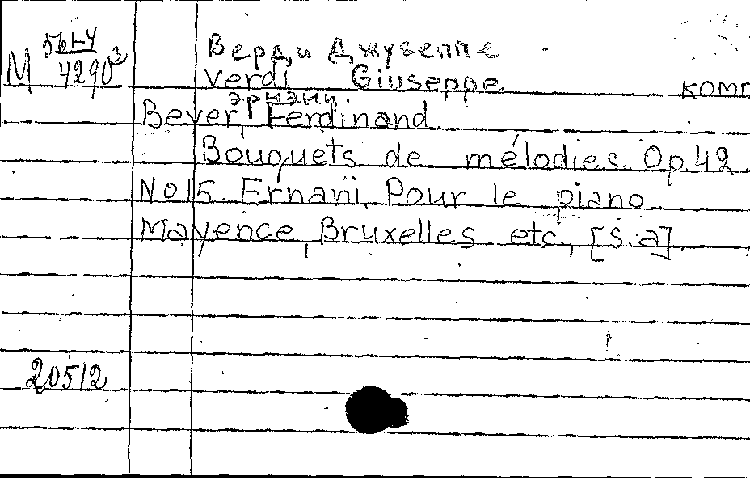 М 561-4
4290³
Верди Джузеппе
Verdi Giuseppe комп
Эрнани
Beyer, Ferdinand
Bouquets de mélodies. Op 42
No 15. Ernani. Pour le piano.
Mayence, Bruxelles etc, [s.a]
20512